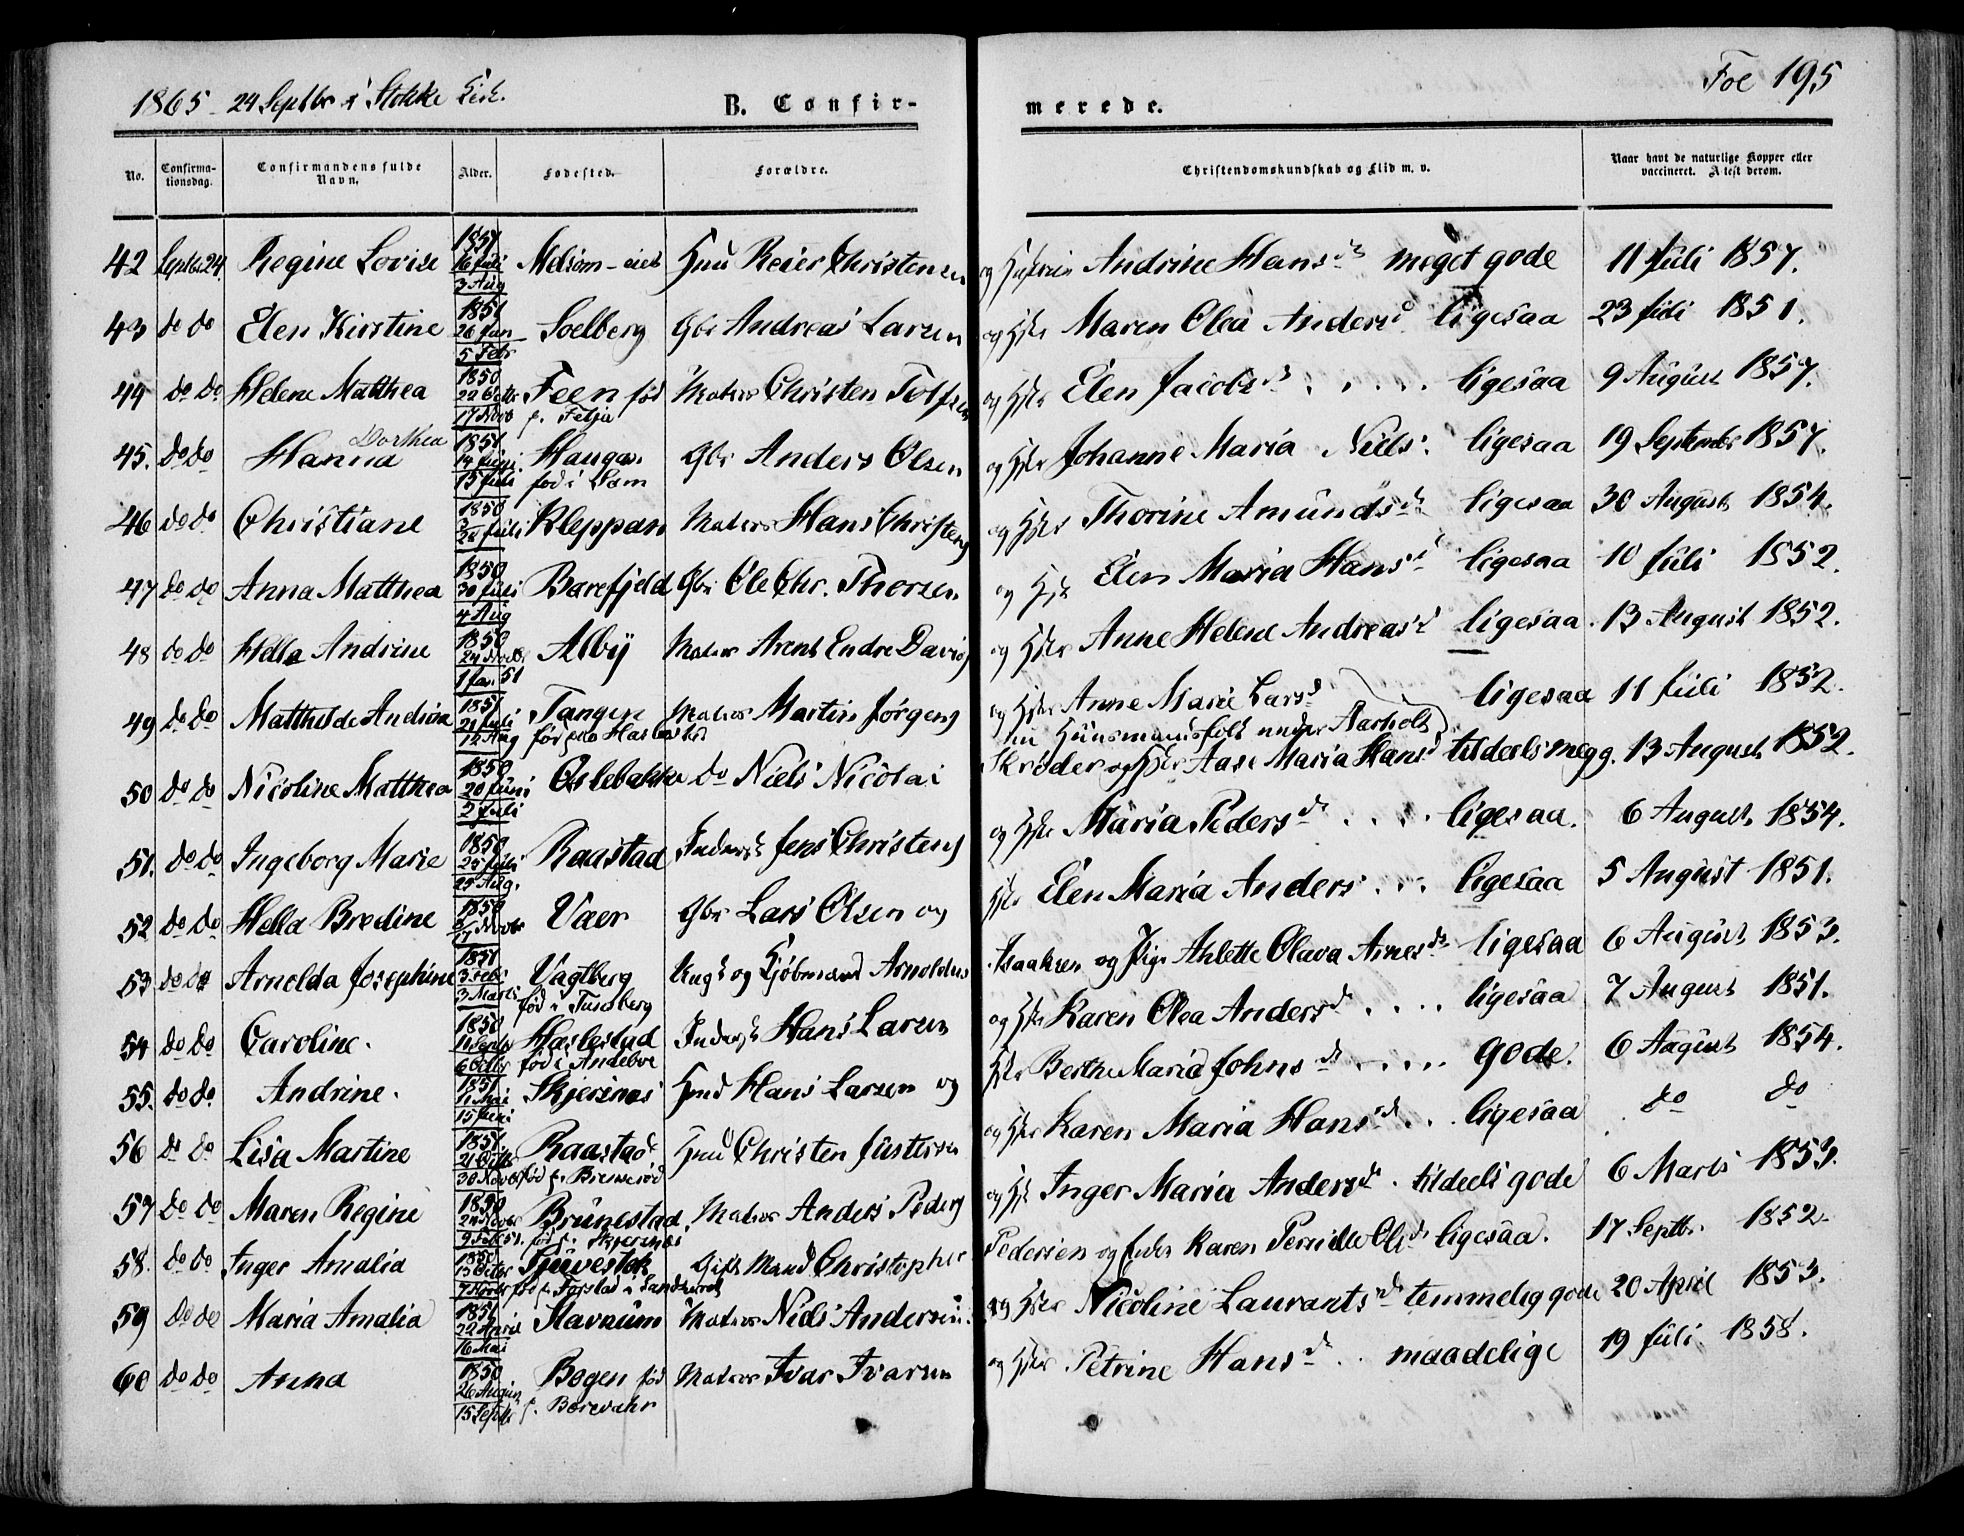 1865 24 Septbr i Stokke Kirk.
B. Confir-
merede.
Fol 195
No.
Confirma-
tionsdag.
Confirmandens fulde
Navn.
Alder.
Fødested.
Forældre.
Christendomskundskab og Flid m. v.
Naar havt de naturlige Kopper eller
vaccineret. Attest derom.
42 Septbr 24 Regine Lovise 1851 16 Juli 3 Aug Melsom-eiet Reier Christensen og Andrine Hansd meget gode 11 Juli 1857.
43 do do Elen Kirstine 1851 26 Jan 5 Febr Soelberg Gbr Andreas Larsen og Maren Olea Andersd ligesaa 23 Juli 1851.
44 do do Helene Matthea 1850 22 Octbr 17 Novb Feen fød Matros Christen Tolfsen og Elen Jacobsd ligesaa 9 August 1857.
45. do do Hanna Dorthea 1851 14 Juni 13 Juli Haugan fød i Sem Gbr Anders Olsen og Johanne Maria Niels ligesaa 19 September 1857.
46 do do Christiane 1850 28 Juli Kleppan Matros Hans Christens og Thorine Amundsd ligesaa 30 August 1854.
47 do do Anna Matthea 1850 30 Juli 4 Aug Barefjeld Gbr Ole Chr. Thorsen og Elen Maria Hansd ligesaa 10 Juli 1852.
48 do do Hella Andrine 1850 24 Novbr 1 Jan. 51 Alby Matros Arent Endre Davids og Anne Helene Andreasd ligesaa 13 August 1852.
49 do do Matthilde Andrine 1851 21 Juli 12 Aug Tangen Matros Martin Jørgens og Anne Marie Larsd nu Huusmandsfolk under Aarholt ligesaa 11 Juli 1852.
50 do do Nicoline Matthea 1850 20 Juni 2 Juli Oslebakke do Niels Nicolai Skrøder og Aase Maria Hansd tildeels meg g. 13 August 1852.
51. do do Ingeborg Marie 1850 25 Juli 25 Aug. Raastad Jens Christens og Maria Pedersd ligesaa. 6 August 1854.
52 do do Hella Bredine 1850 Novbr Vaer Gbr Lars Olsen og Elen Maria Anders ligesaa 5 August 1851.
53 do do Arnolda Josephine 1851 3 Febr 3 Marts Vagtberg fød i Tunsberg Ungk og Kjøbmand Arnoldus Isaaksen og Pige Ahlette Olava Arnesd ligesaa 6 August 1853.
54 do do Caroline. 1850 11 Septbr 6 Octbr Haslestad fød i Andebo Hans Larsen og Karen Olea Andersd ligesaa 7 August 1851.
55. do do Andrine. 1851 11 Mai 15 Juni Skjerinnes Hans Larsen og Berthe Maria Johnsd gode. 6 August 1854.
56 do do Lisa Martine 1851 21 Octbr 30 Novb Raastad Christen Justesen og Karen Maria Hansd ligesaa do do
57 do do Maren Regine 1850 24 Novbr 9 Feb 51. Brunestad Matros Anders Peders og Inger Maria Andersd tildeels gode 6 Marts 1853.
58. do do Inger Amalia 1850 13 Octbr 7 Novbr Tjuvestok Gift Mand Christopher Pedersen og Karen Pernille Olsd ligesaa. 17 Septbr. 1852.
59 do do Maria Amalia 1851 22 April 16 Mai Stavnum Matros Niels Andersen og Nicoline Laurantsd temmelig gode 20 April 1853.
60 do do Anna 1850 26 August 15 Septbr Bogen fød Matros Ivar Ivarsen og Petrine Hansd maadelige 19 Juli 1858.